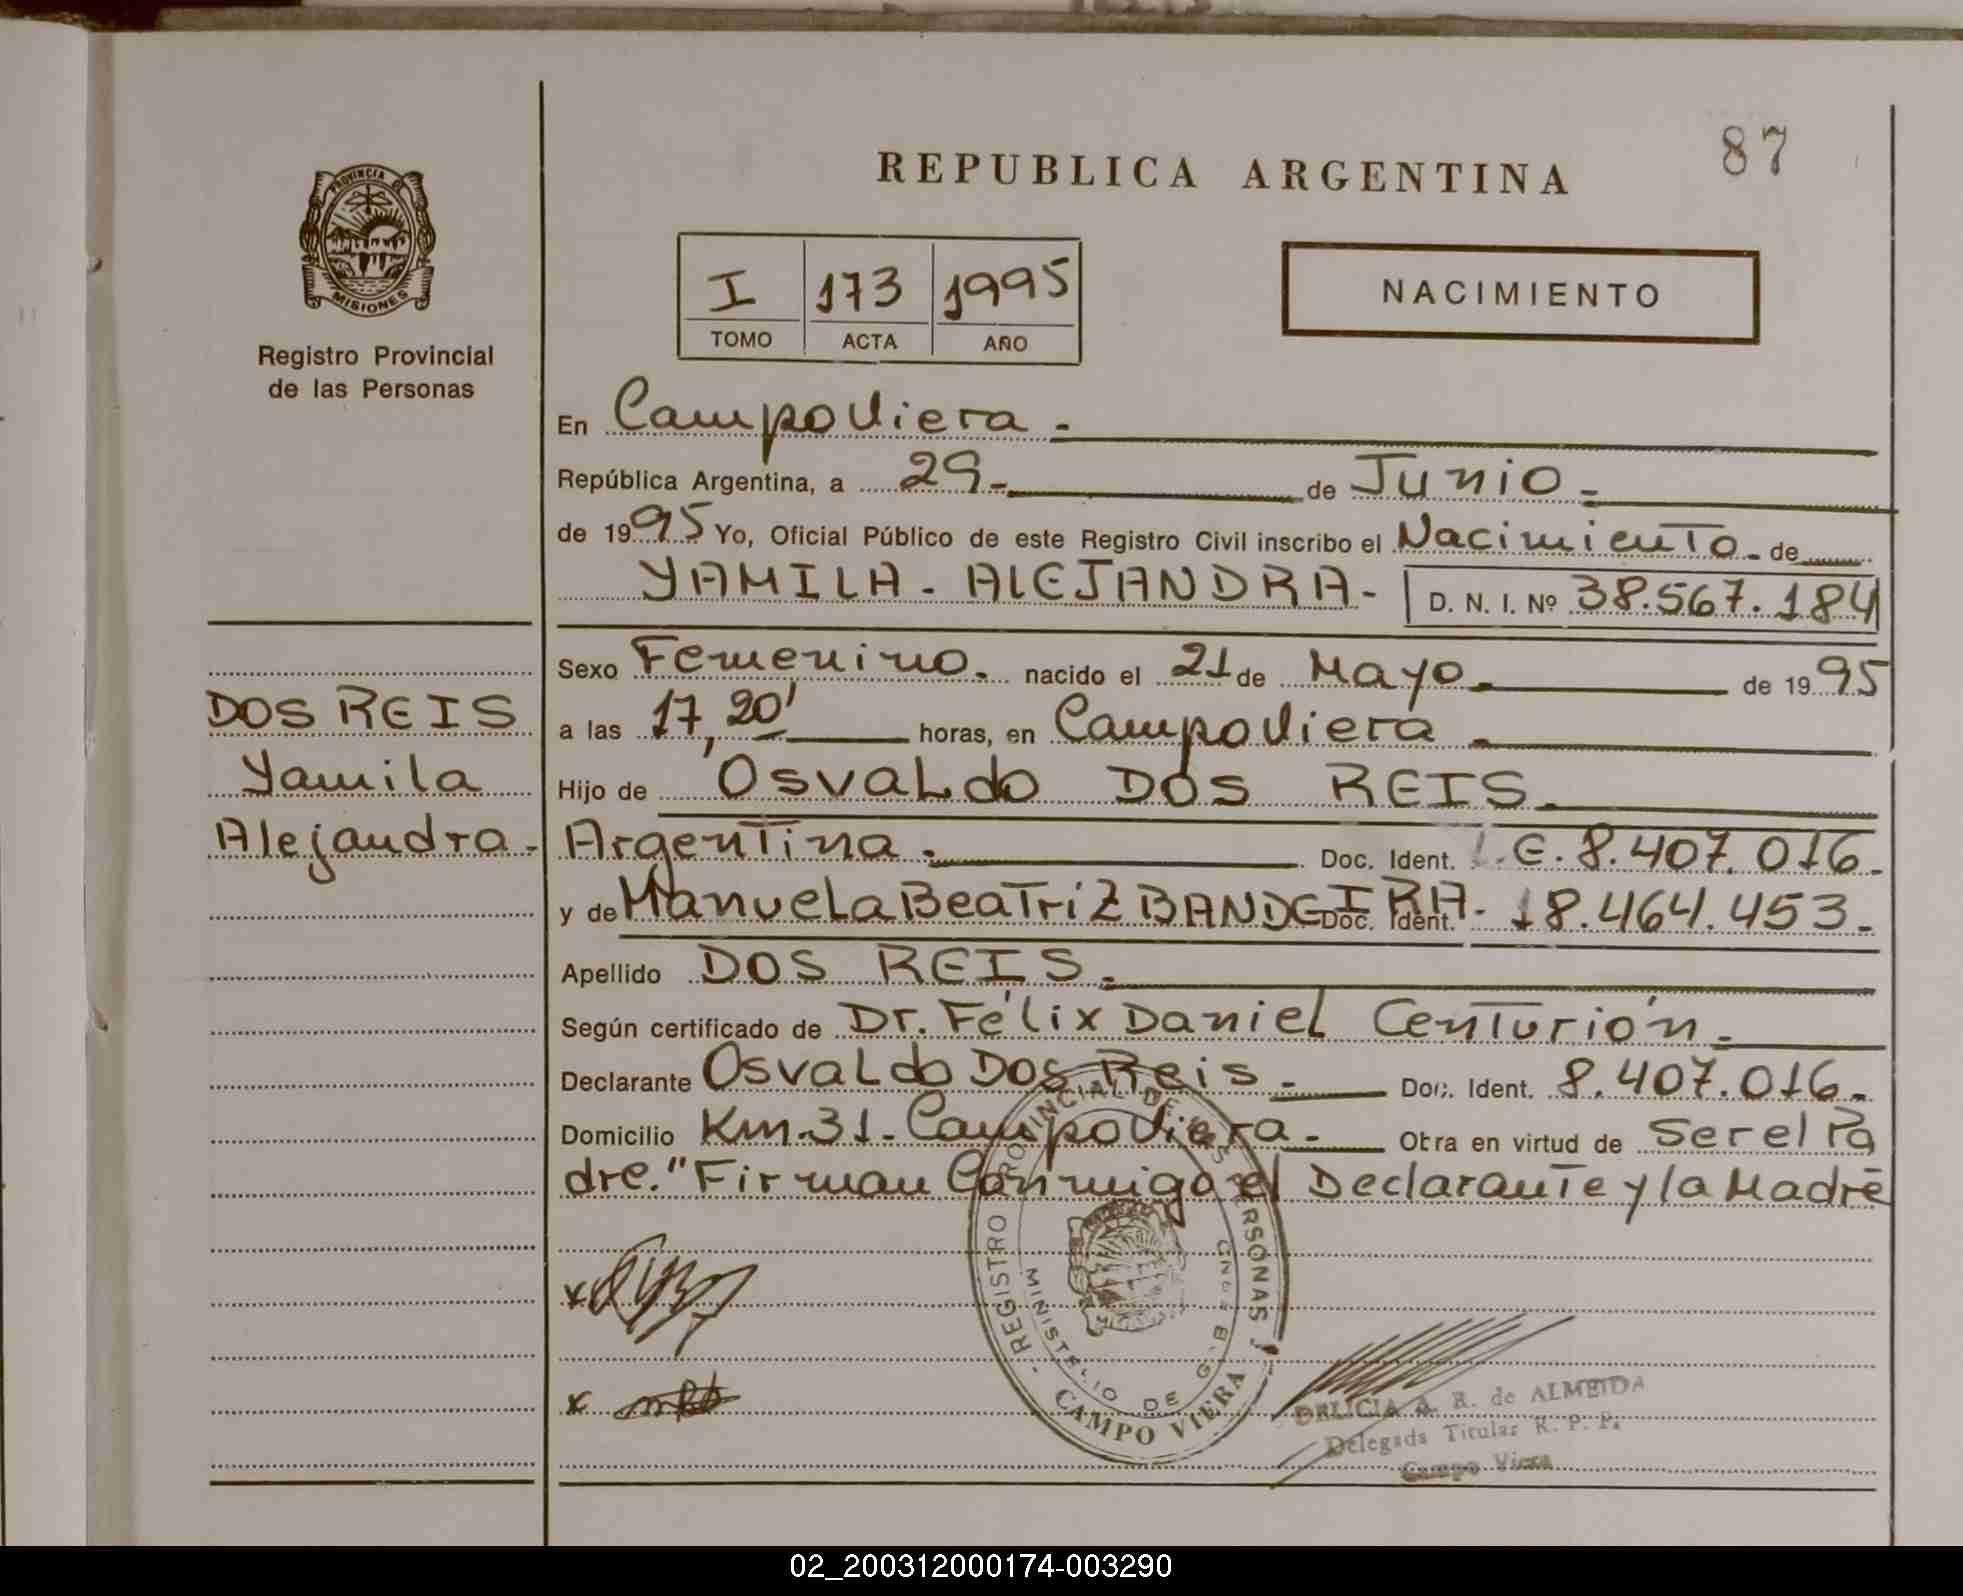 87
REPUBLICA ARGENTINA
PROVINCIA DE
MISIONES
Registro Provincial
de las Personas
I 173 1995
TOMO ACTA AÑO
NACIMIENTO
En Campo Viera.
República Argentina, a 29 de Junio
de 1995 Yo, Oficial Público de este Registro Civil inscribo el Nacimiento de
YAMILA - ALEJANDRA - D. N. I. Nº 38.567.184
Sexo Femenino. nacido el 21 de Mayo de 1995
a las 17,20' horas, en Campo Viera
Hijo de Osvaldo DOS REIS
Argentina. Doc. Ident. L.E. 8.407.016.
y de Manuela Beatriz BANDEIRA - Doc. Ident. 18.464.453.
Apellido DOS REIS.
Según certificado de Dr. Félix Daniel Centurión.
Declarante Osvaldo Dos Reis. Doc. Ident. 8.407.016.
Domicilio Km. 31 - Campo Viera. Otra en virtud de Ser el Pa
dre." Firman Conmigo el Declarante y la Madre
DOS REIS
Yamila
Alejandra -
REGISTRO PROVINCIAL DE LAS PERSONAS
MINISTERIO DE GOB
CAMPO VIERA
x
x
DELICIA A. R. de ALMEIDA
Delegada Titular R. P. P.
Campo Viera
02_200312000174-003290